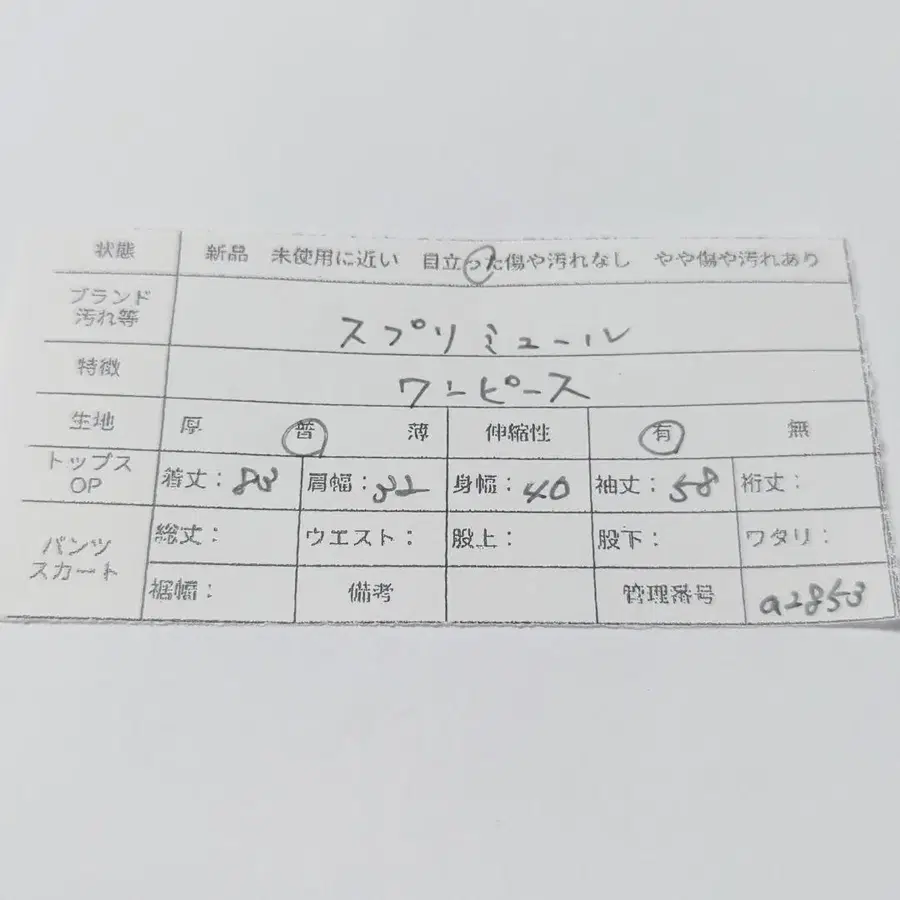 状態 新品 未使用に近い 目立った傷や汚れなし やや傷や汚れあり
ブランド
汚れ等 スプリミュール
特徴 ワンピース
生地 厚 普 薄 伸縮性 有 無
トップス
OP 着丈: 83 肩幅: 32 身幅: 40 袖丈: 58 裄丈:
パンツ
スカート 総丈: ウエスト: 股上: 股下: ワタリ:
裾幅: 備考 管理番号 a2853